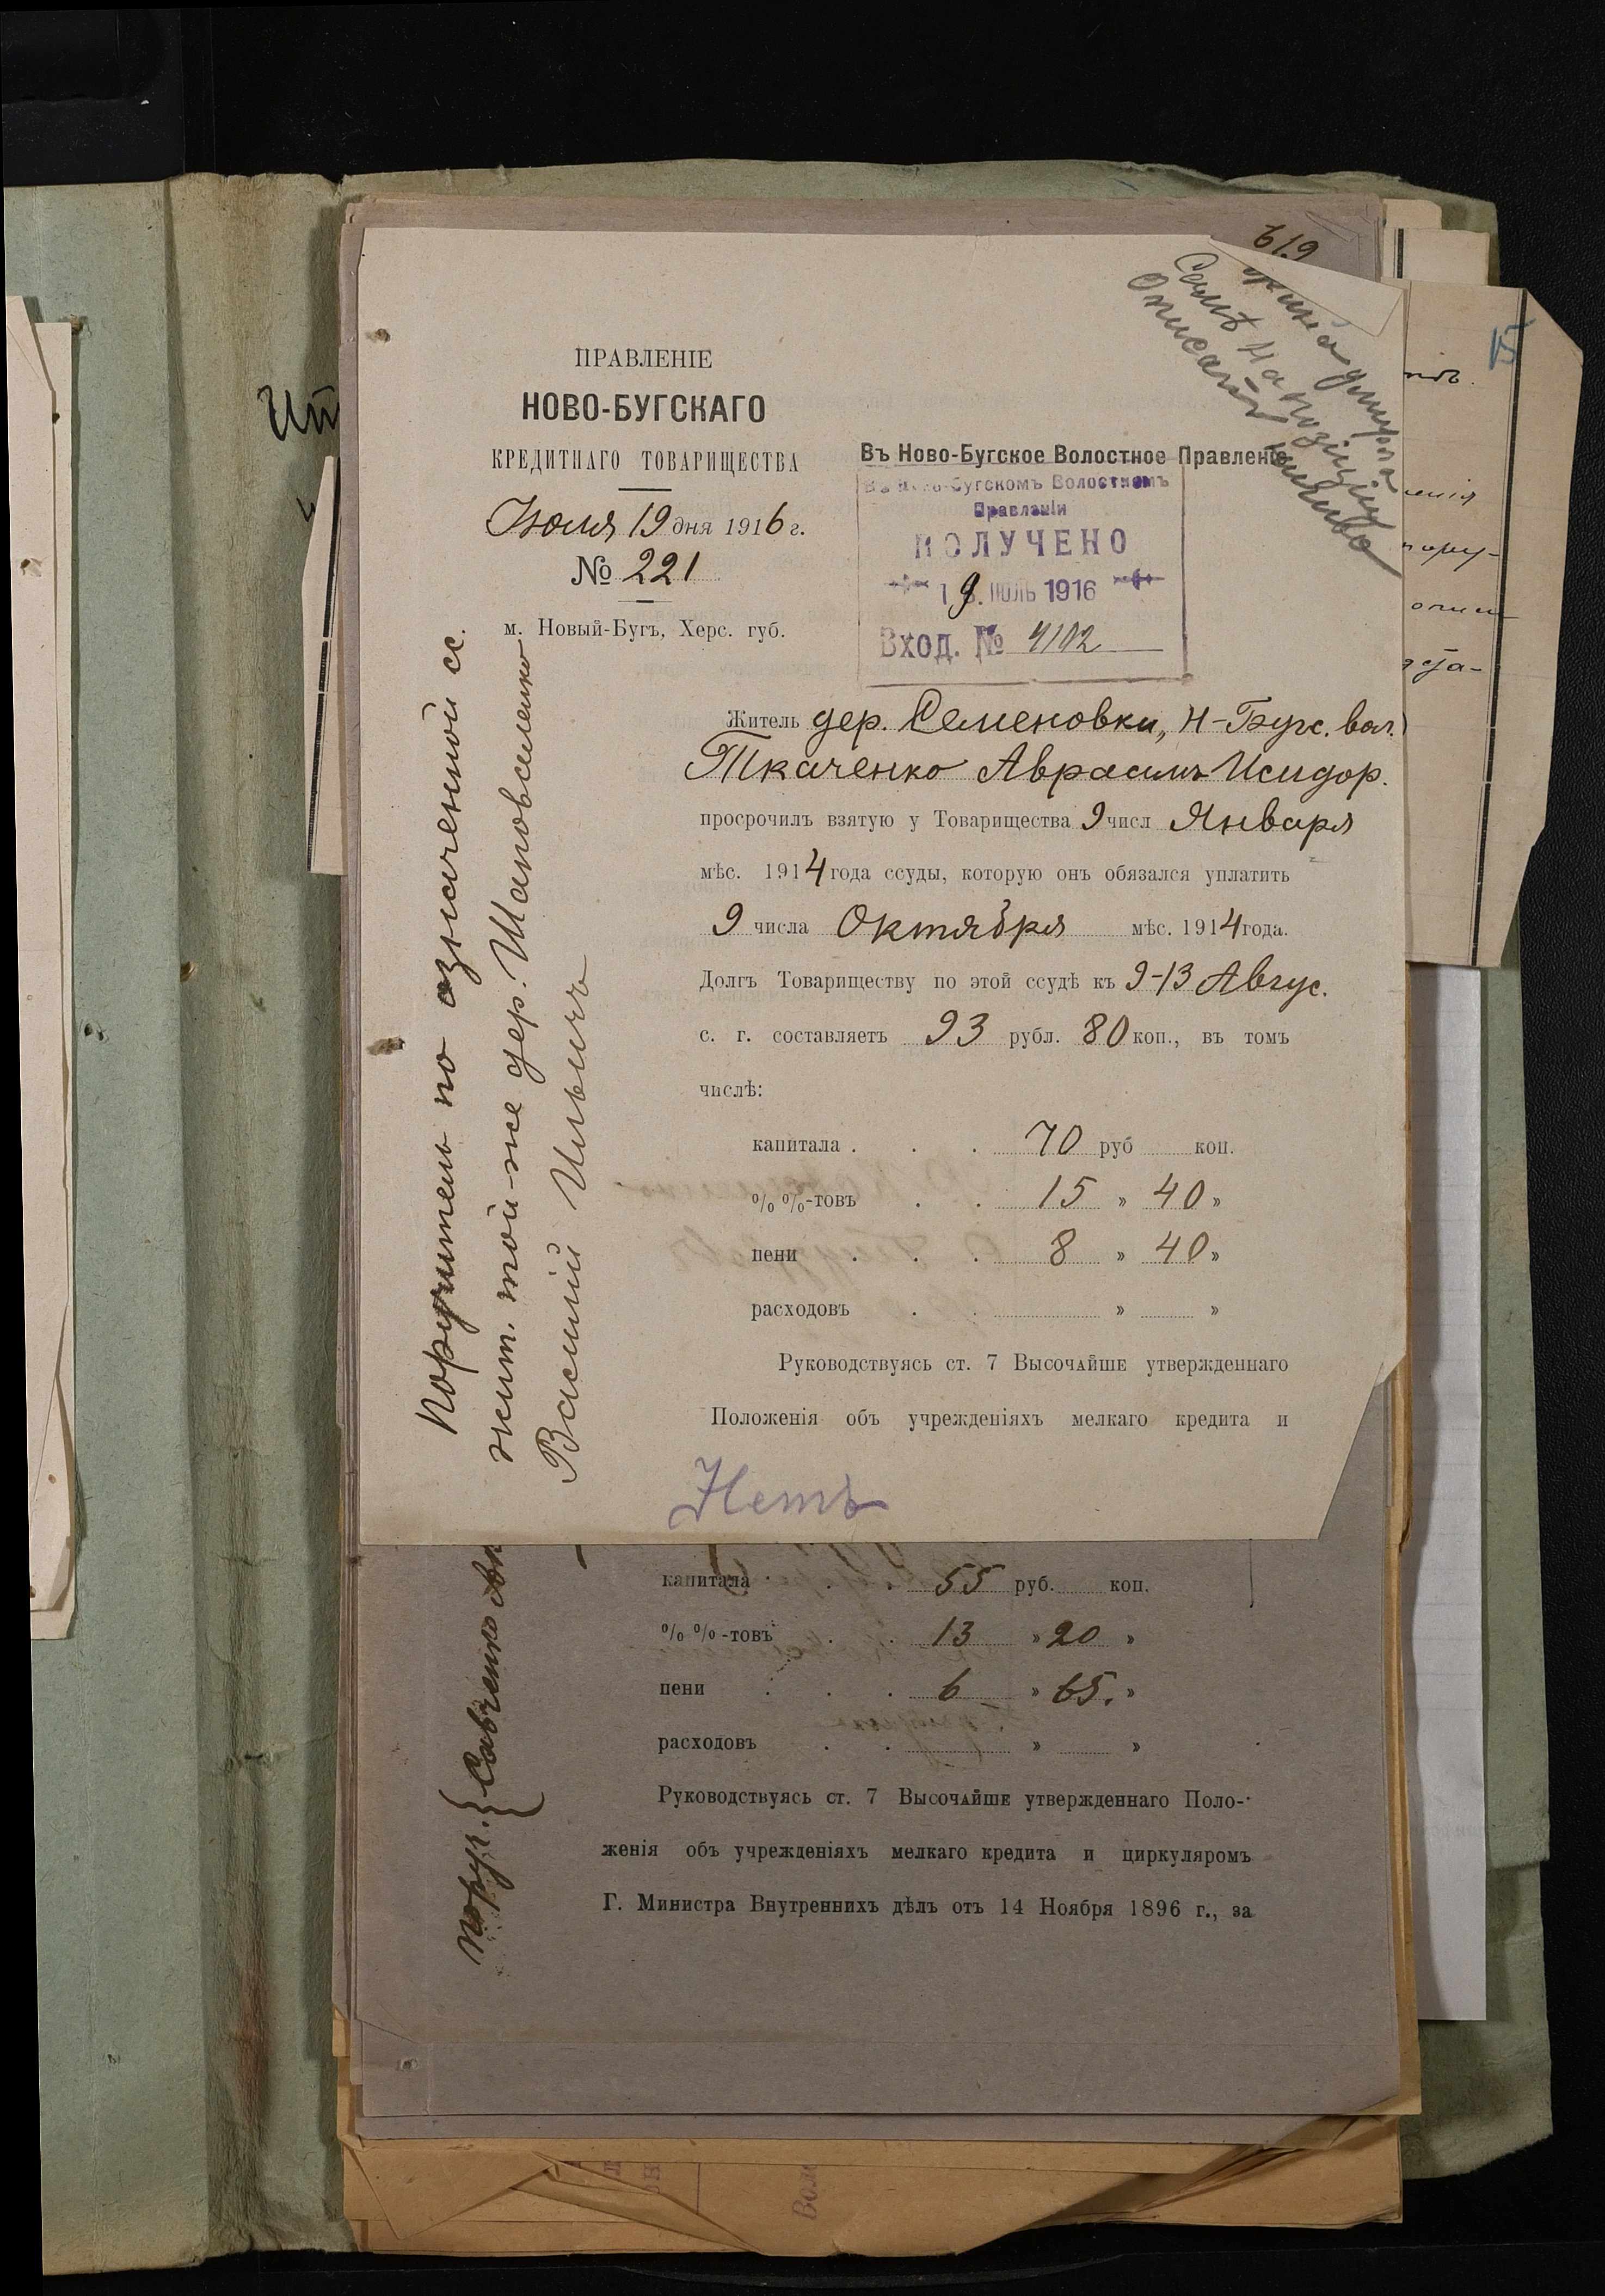 619
жина умерла
Самъ на позиціи
Описать нечего
15
ПРАВЛЕНІЕ
НОВО-БУГСКАГО
КРЕДИТНАГО ТОВАРИЩЕСТВА
Іюля 19 дня 1916 г.
№ 221
м. Новый-Бугъ, Херс. губ.
Въ Ново-Бугское Волостное Правленіе
Въ Ново-Бугскомъ Волостномъ
Правленіи
ПОЛУЧЕНО
19. ІЮЛЬ 1916
Вход. № 4102
Житель дер. Семеновки, Н-Бугс. вол.
Ткаченко Авраамъ Исидор.
просрочилъ взятую у Товарищества 9 числ Января
мѣс. 1914 года ссуды, которую онъ обязался уплатить
9 числа Октября мѣс. 1914 года.
Долгъ Товариществу по этой ссудѣ къ 9-13 Авгус.
с. г. составляетъ 93 рубл. 80 коп., въ томъ
числѣ:
капитала . . . 70 руб коп.
% %-товъ . . 15 » 40 »
пени . . . 8 » 40 »
расходовъ . . » »
Руководствуясь ст. 7 Высочайше утвержденнаго
Положенія объ учрежденіяхъ мелкаго кредита и
Нетъ
Поручитель по означенной сс.
жит. той-же дер. Шаповаленко
Василій Ильичъ
капитала . . . 55 руб. коп.
% %-товъ . . 13 » 20 »
пени . . . 6 » 65. »
расходовъ . . » »
Руководствуясь ст. 7 Высочайше утвержденнаго Поло-
женія объ учрежденіяхъ мелкаго кредита и циркуляромъ
Г. Министра Внутреннихъ дѣлъ отъ 14 Ноября 1896 г., за
поруч. { Савченко